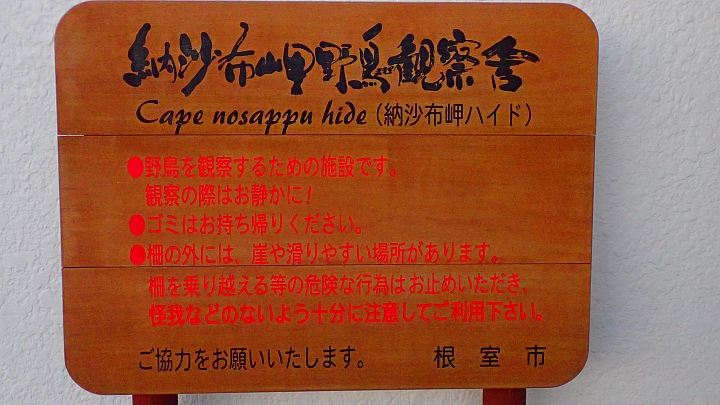 納沙布岬野鳥観察舎
Cape nosappu hide(納沙布岬ハイド)
●野鳥を観察するための施設です。
観察の際はお静かに!
●ゴミはお持ち帰りください。
●柵の外には、崖や滑りやすい場所があります。
柵を乗り越える等の危険な行為はお止めいただき、
怪我などのないよう十分に注意してご利用下さい。
ご協力をお願いいたします。 根室市